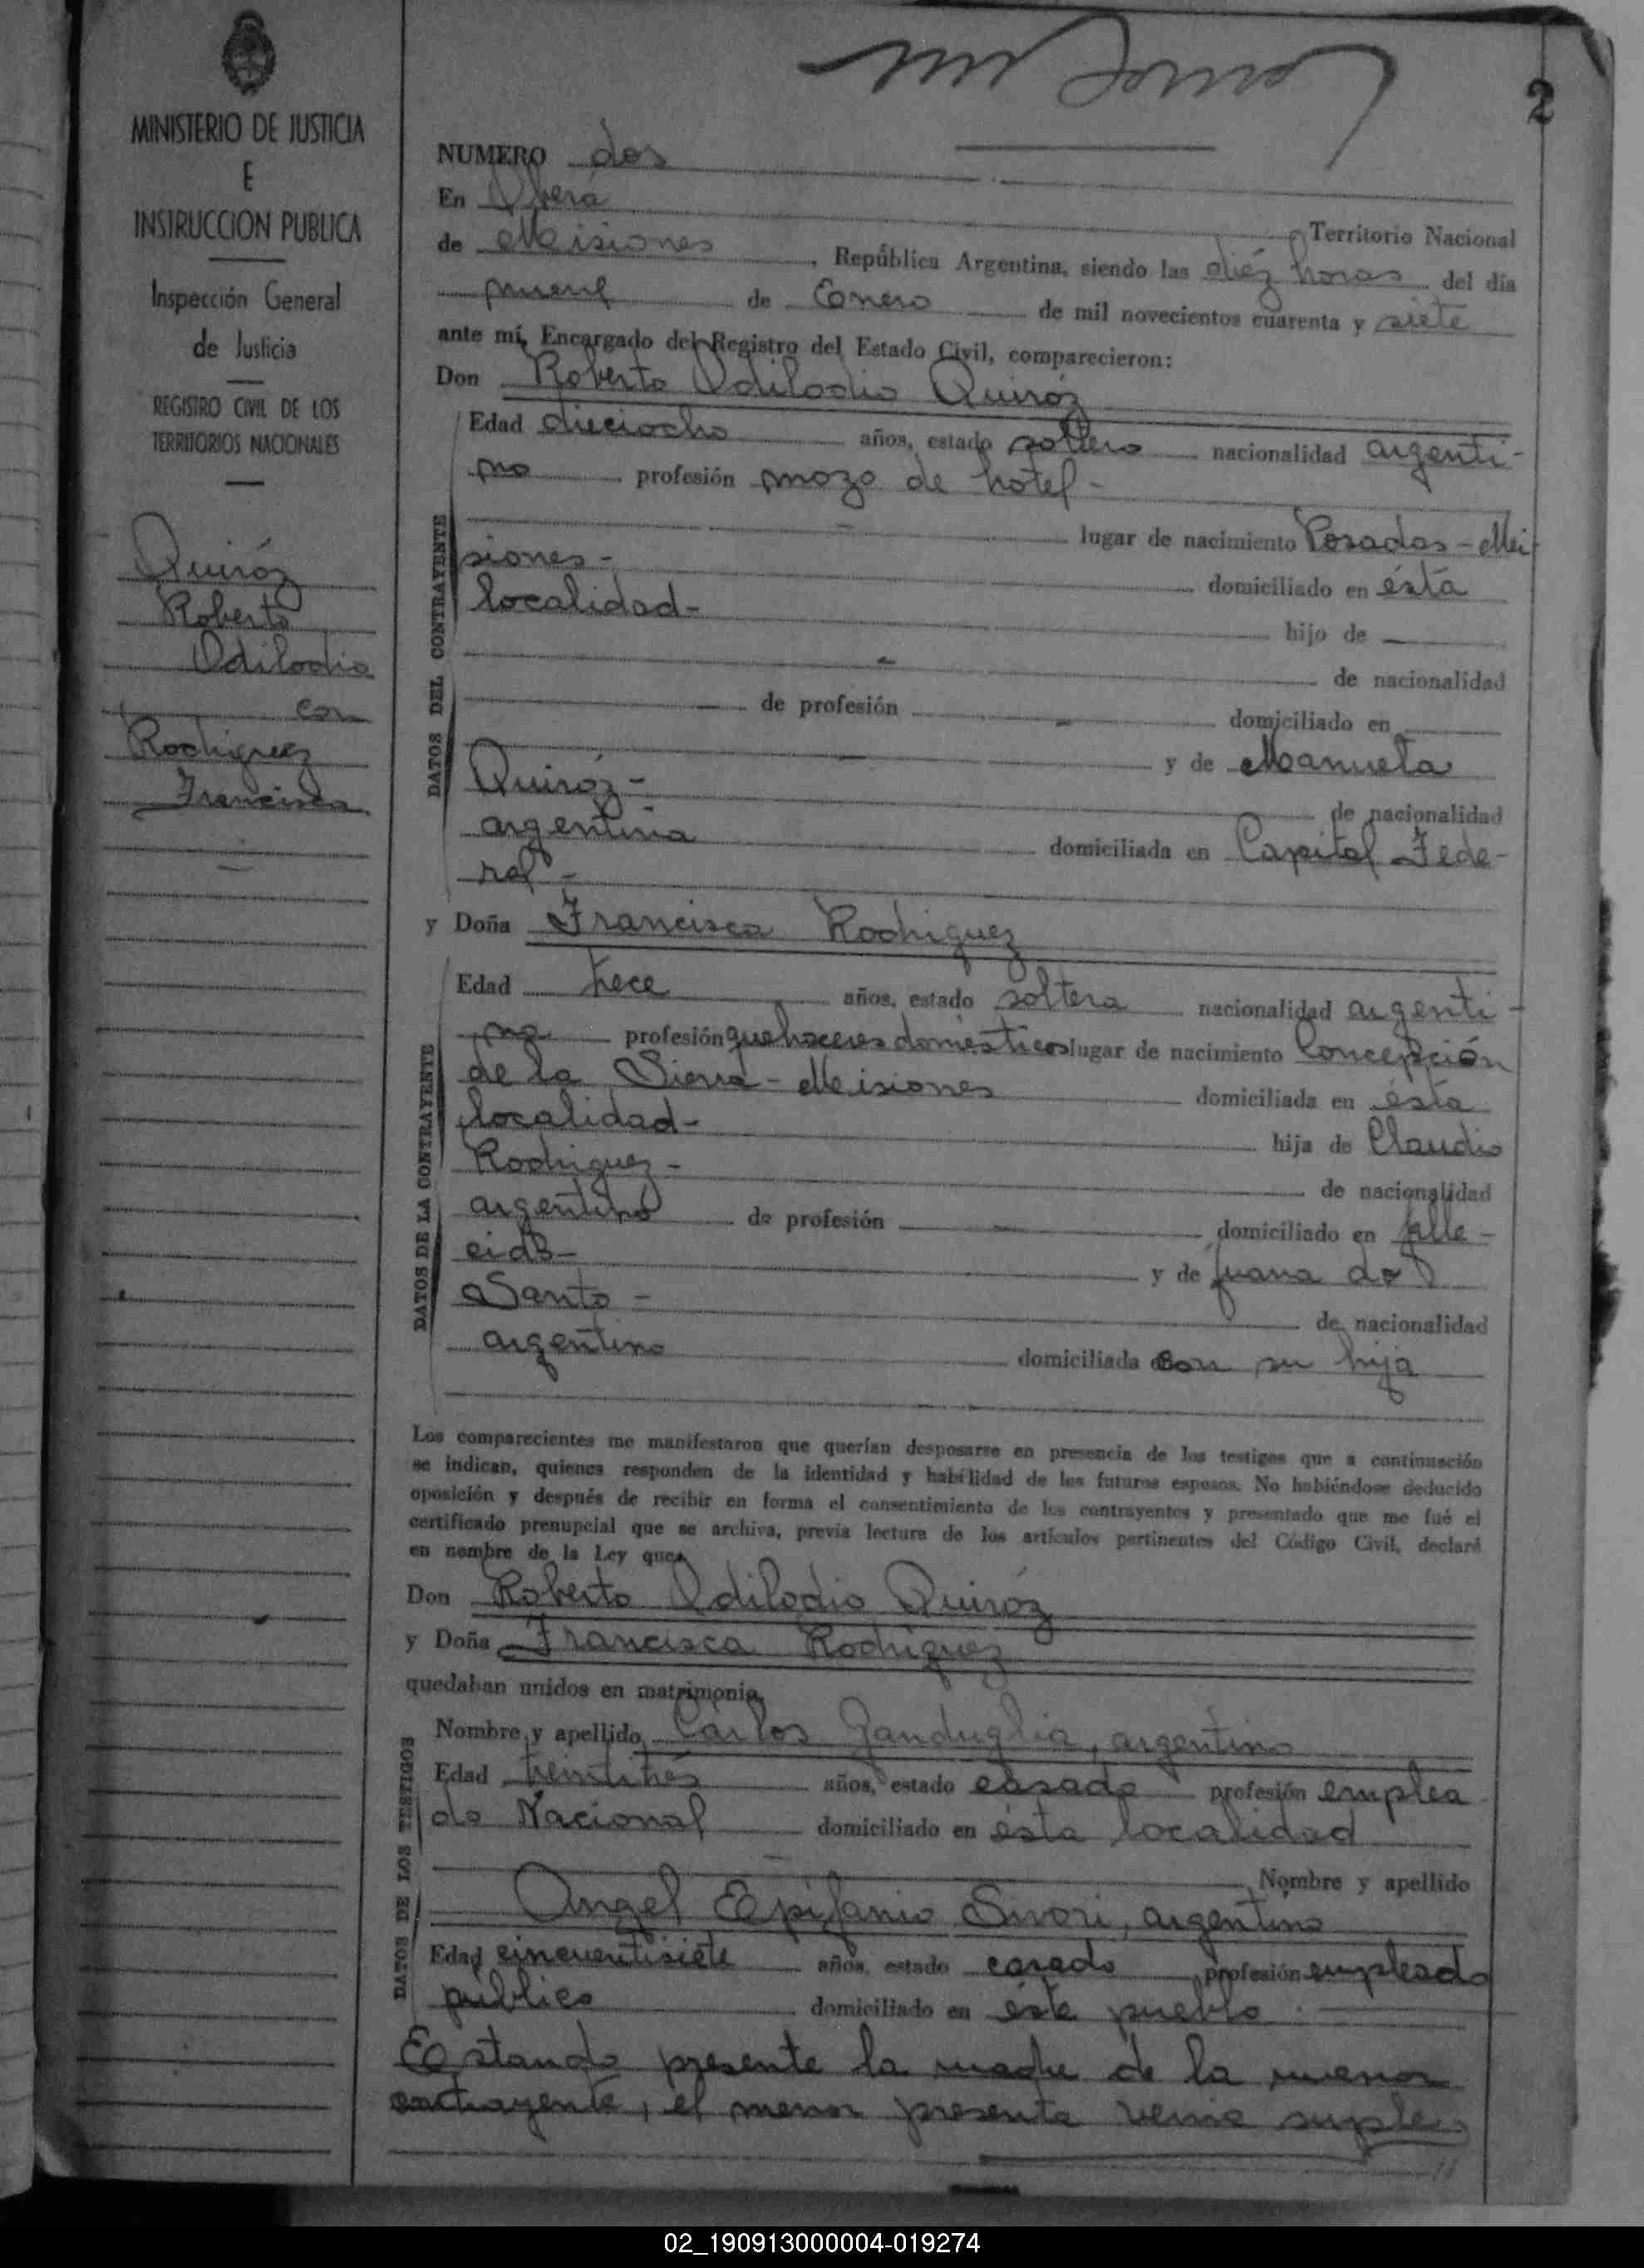 2
MINISTERIO DE JUSTICIA
E
INSTRUCCION PUBLICA
Inspección General
de Justicia
REGISTRO CIVIL DE LOS
TERRITORIOS NACIONALES
Quiróz
Roberto
Odilodio
con
Rodriguez
Francisca
NUMERO dos
En Oberá Territorio Nacional
de Misiones, República Argentina, siendo las diéz horas del día
nueve de Enero de mil novecientos cuarenta y siete
ante mí, Encargado del Registro del Estado Civil, comparecieron:
Don Roberto Odilodio Quiróz
DATOS DEL CONTRAYENTE
Edad dieciocho años, estado soltero nacionalidad argenti-
no profesión mozo de hotel-
lugar de nacimiento Posadas - Mi
siones- domiciliado en ésta
localidad- hijo de
de nacionalidad
de profesión domiciliado en
y de Manuela
Quiróz- de nacionalidad
argentina domiciliada en Capital Fede-
ral-
y Doña Francisca Rodriguez
DATOS DE LA CONTRAYENTE
Edad trece años, estado soltera nacionalidad argenti-
na profesión quehaceres domésticos lugar de nacimiento Concepción
de la Sierra - Misiones domiciliada en ésta
localidad- hija de Claudio
Rodriguez- de nacionalidad
argentino de profesión domiciliado en falle-
cido- y de Juana do
Santo- de nacionalidad
argentina domiciliada con su hija
Los comparecientes me manifestaron que querían desposarse en presencia de los testigos que a continuación
se indican, quienes responden de la identidad y habilidad de los futuros esposos. No habiéndose deducido
oposición y después de recibir en forma el consentimiento de los contrayentes y presentado que me fué el
certificado prenupcial que se archiva, previa lectura de los artículos pertinentes del Código Civil, declaré
en nombre de la Ley que,
Don Roberto Odilodio Quiróz
y Doña Francisca Rodriguez
quedaban unidos en matrimonio.
DATOS DE LOS TESTIGOS
Nombre y apellido Cárlos Ganduglia, argentino
Edad treintitrés años, estado casado profesión emplea
do Nacional domiciliado en ésta localidad
Nombre y apellido
Angel Epifanio Sivori, argentino
Edad cincuentisiete años, estado casado profesión empleado
público domiciliado en éste pueblo.
Estando presente la madre de la menor
contrayente, el menor presenta venia suple
02_190913000004-019274